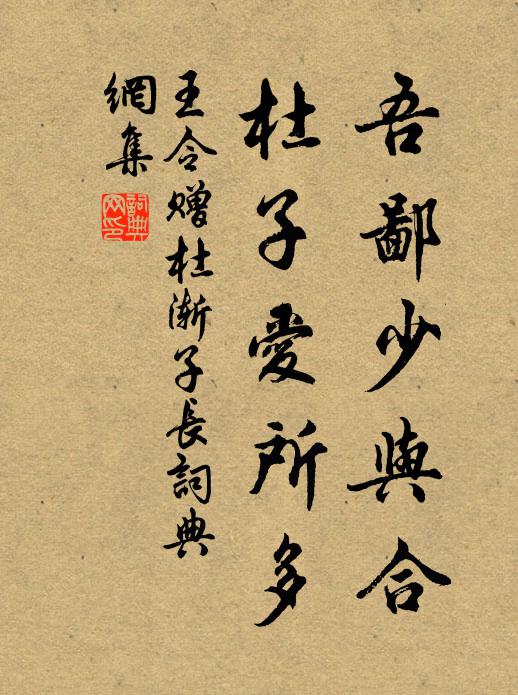 吾鄙少與合
杜子愛所多
王令贈杜漸子長詞典
網集
詞典網印